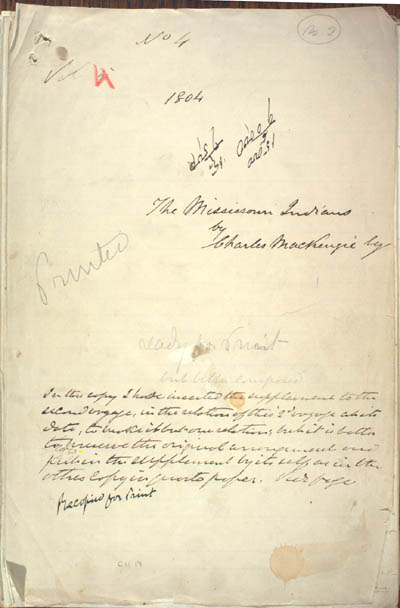 No 4
No 2
1804
The Mississouri Indians
by
Charles MacKenzie Esq
Printed
ready for Print
but better composed
In this copy I have inserted the supplement to the
second voyage, in the relation of this 2d voyage at its
date, to make it but one relation; but it is better
to preserve the original arrangement and
put in the supplement by itself as in the
other copy in quarto paper.
Recopied for Print
C H 19